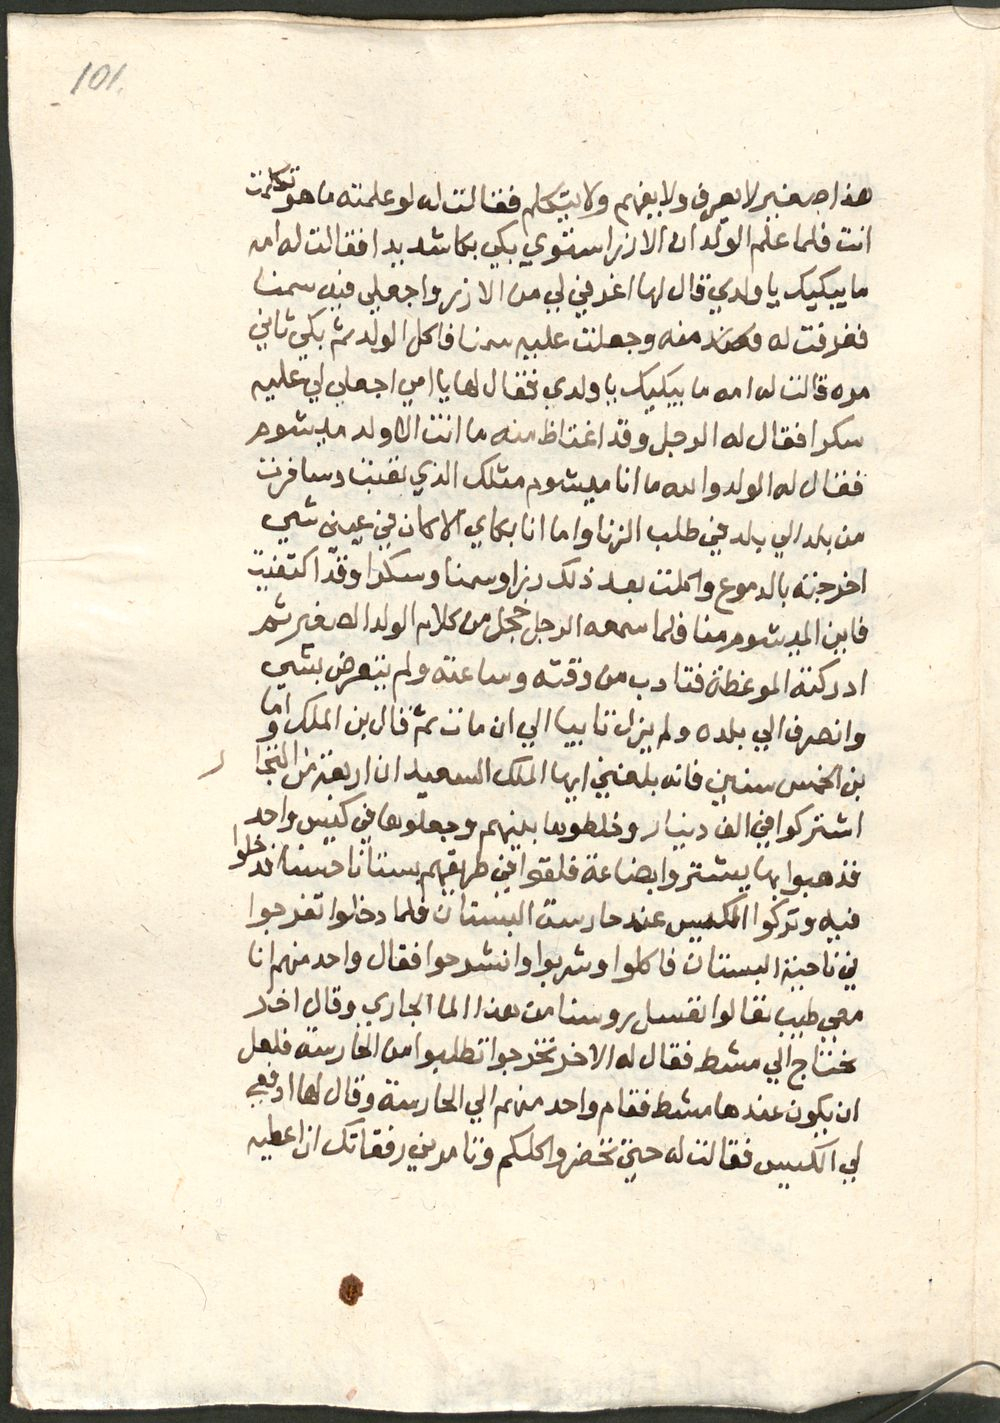 101.
هذا صغير لا يعرف ولا يفهم ولا يتكلم فقالت له لو علمته ما هو تكلمت
انت فلما علم الولد ان الارز استوي بكي بكا شديدا فقالت له امه
ما يبكيك يا ولدي قال لها اغرفي لي من الارز واجعلي فيه سمنا
فغرفت له منه وجعلت عليه سمنا فاكل الولد ثم بكي ثاني
مره قالت له امه ما يبكيك يا ولدي فقال لها يا امي اجعلي لي عليه
سكرا فقال له الرجل وقد اغتاظ منه ما انت الا ولد ميشوم
فقال له الولد والله ما انا ميشوم مثلك الذي تعبت وسافرت
من بلد الي بلد في طلب الزنا واما انا بكاي الا كان في عيني شي
اخرجته بالدموع واكلت بعد ذلك رزا وسمنا وسكرا وقد اكتفيت
فاين الميشوم منا فلما سمعه الرجل خجل من كلام الولد الصغير ثم
ادركته الموعظة فتادب من وقته وساعته ولم يتعرض بشي
وانصرف الي بلده ولم يزل تايبا الي ان مات ثم قال بن الملك واما
بن الخمس سنين فانه بلغني ايها الملك السعيد ان اربعة من التجار
اشتركوا في الف دينار وخلطوها بينهم وجعلوها في كيس واحد
فذهبوا بها يشتروا بضاعة فلقوا في طريقهم بستانا حسنا فدخلوا
فيه وتركوا الكيس عند حارسة البستان فلما دخلوا تفرجوا
في ناحية البستان فاكلوا وشربوا وانشرحوا فقال واحد منهم انا
معي طيب تعالوا نغسل روسنا من هذا الما الجاري وقال اخر
نحتاج الي مشط فقال له الاخر نخرجوا تطلبوا من الحارسة فلعل
ان يكون عندها مشط فقام واحد منهم الي الحارسة وقال لها ادفعي
لي الكيس فقالت له حتي تحضروا كلكم وتامرني رفقاتك ان اعطيه